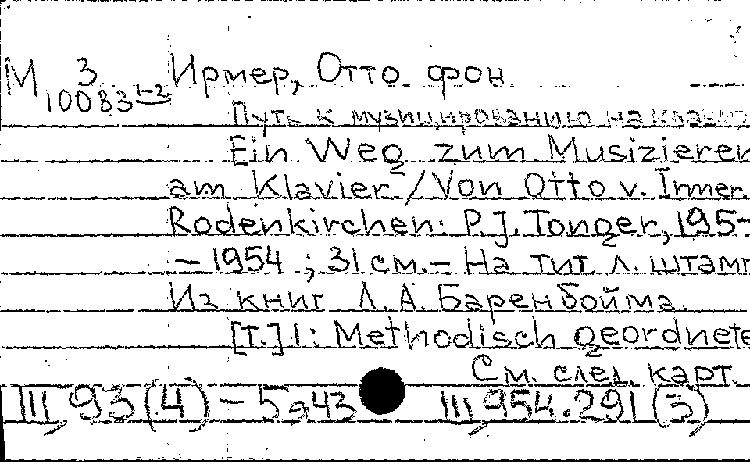 М 3 Ирмер, Отто фон
10083 1-2
Путь к музицированию на
Ein Weg zum Musizieren
am Klavier / Von Otto v. Irmer.
Rodenkirchen: P. J. Tonger, 195-
- 1954 ; 31 см. - На тит. л. штамп
Из книг Л. А. Баренбойма
[Т.] 1: Methodisch geordnete
См. след. карт.
III, 93(4) - 5 943 III, 954.291(3)